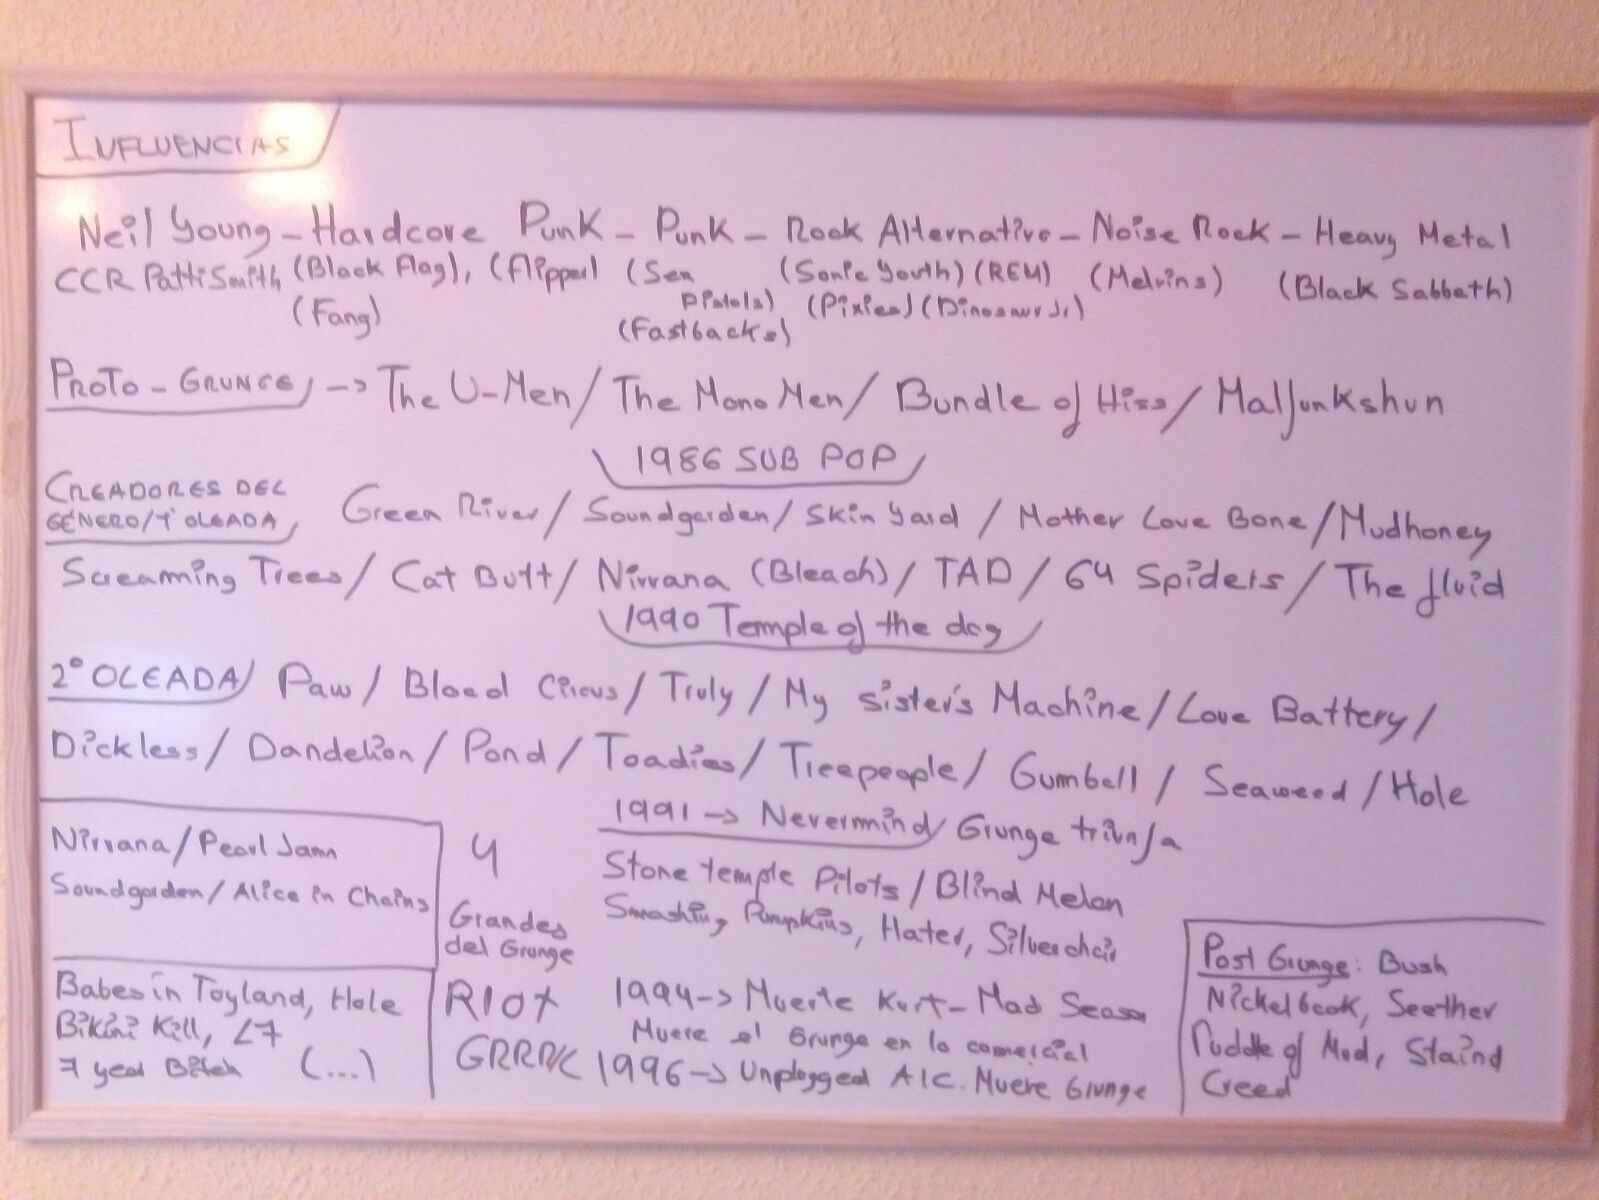 INFLUENCIAS
Neil Young - Hardcore Punk - Punk - Rock Alternativo - Noise Rock - Heavy Metal
CCR Patti Smith (Black Flag), (Flipper) (Sex Pistols) (Sonic Youth) (REM) (Melvins) (Black Sabbath)
(Fang) (Fastbacks) (Pixies) (Dinosaur Jr)
PROTO - GRUNGE -> The U-Men / The Mono Men / Bundle of Hiss / Malfunkshun
1986 SUB POP
CREADORES DEL
GÉNERO/1ª OLEADA Green River / Soundgarden / Skin Yard / Mother Love Bone / Mudhoney
Screaming Trees / Cat Butt / Nirvana (Bleach) / TAD / 64 Spiders / The fluid
1990 Temple of the dog
2º OLEADA Paw / Blood Circus / Truly / My sister's Machine / Love Battery /
Dickless / Dandelion / Pond / Toadies / Treepeople / Gumball / Seaweed / Hole
1991 -> Nevermind Grunge triunfa
Nirvana / Pearl Jam
Soundgarden / Alice in Chains
4
Grandes
del Grunge
Stone temple Pilots / Blind Melon
Smashing Pumpkins, Hater, Silverchair
Babes in Toyland, Hole
Bikini Kill, L7
7 year Bitch (...)
RIOT
GRRRL
1994 -> Muerte Kurt - Mad Season
Muere el Grunge en lo comercial
1996 -> Unplugged AIC. Muere Grunge
Post Grunge: Bush
Nickelback, Seether
Puddle of Mud, Staind
Creed